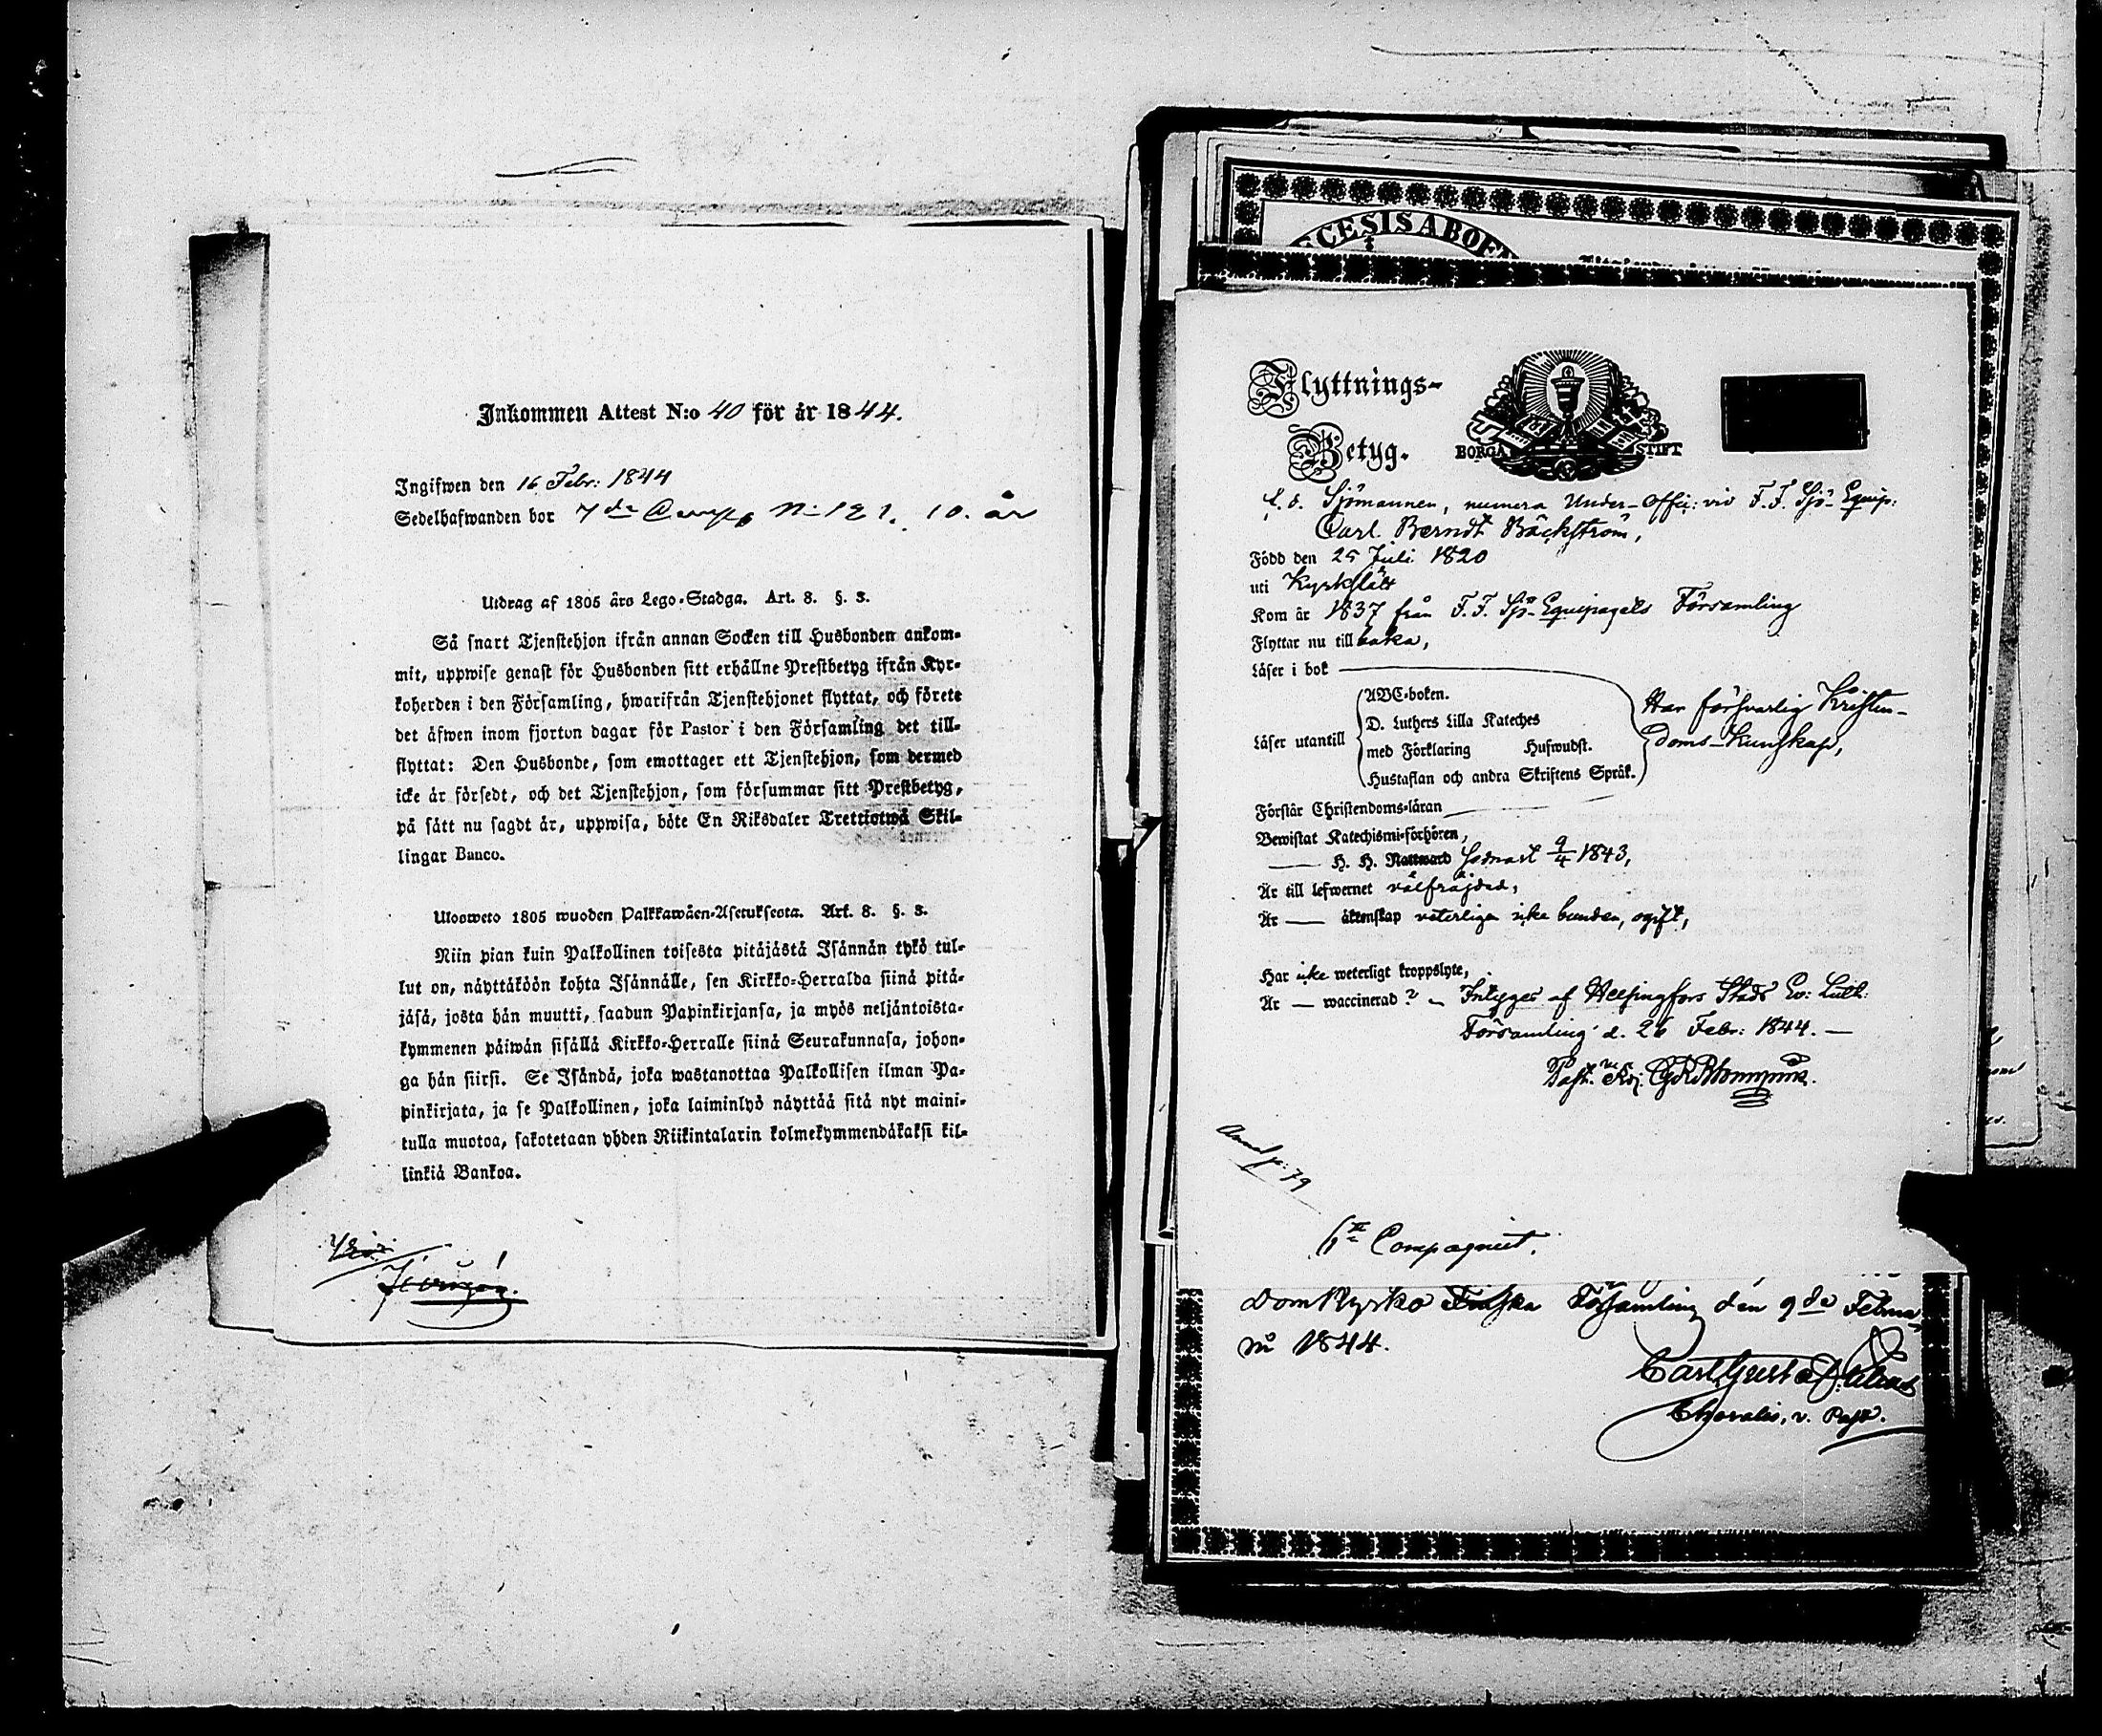 Inkommen Attest N:o 40 för år 1844.
Ingifwen den 16 Febr: 1844
Sedelhafwanden bor 7de Comp. N: 121. 10. år
Utdrag af 1805 års Lego-Stadga. Art. 8. §. 3.
Så snart Tjenstehjon ifrån annan Socken till Husbonden ankom-
mit, uppwise genast för Husbonden sitt erhållne Prestbetyg ifrån Kyr-
koherden i den Församling, hwarifrån Tjenstehjonet flyttat, och förete
det äfwen inom fjorton dagar för Pastor i den Församling det till-
flyttat: Den Husbonde, som emottager ett Tjenstehjon, som dermed
icke är försedt, och det Tjenstehjon, som försummar sitt Prestbetyg,
på sätt nu sagdt är, uppwisa, böte En Riksdaler Trettiotwå Skil-
lingar Banco.
Ulosweto 1805 wuoden Palkkawäen-Asetuksesta. Art. 8. §. 3.
Niin pian kuin Palkollinen toisesta pitäjästä Isännän tykö tul-
lut on, näyttäköön kohta Isännälle, sen Kirkko-Herralda siinä pitä-
jäsä, josta hän muutti, saadun Papinkirjansa, ja myös neljäntoista-
kymmenen päiwän sisällä Kirkko-Herralle siinä Seurakunnasa, johon-
ga hän siirsi. Se Isändä, joka wastanottaa Palkollisen ilman Pa-
pinkirjata, ja se Palkollinen, joka laiminlyö näyttää sitä nyt maini-
tulla muotoa, sakotetaan yhden Riikintalarin kolmekymmendäkaksi kil-
linkiä Bankoa.
ECESIS ABOEN
Flyttnings-
Betyg.
BORGÅ STIFT
f. d. Sjömannen, numera Under-Offic: vid F. F. Sjö-Equip:
Carl Berndt Bäckström,
Född den 25 Juli 1820
uti Kyrkslätt
Kom år 1837 från F. F. Sjö-Equipagets Församling
Flyttar nu till baka,
Läser i bok
Läser utantill
ABC-boken.
D. Luthers Lilla Kateches
med Förklaring Hufwudst.
Hustaflan och andra Skriftens Språk.
Har försvarlig Kristen-
doms-kunskap,
Förstår Christendoms-läran
Bewistat Katechismi-förhören,
H. H. Nattward sednast 9/4 1843,
Är till lefwernet välfräjdad,
Är äktenskap veterligen icke bunden, ogift,
Har icke weterligt kroppslyte,
Är — waccinerad? — Intygas af Helsingfors Stads Ev: Luth:
Församling d. 26 Febr: 1844. —
6te Compagniet.
DomKyrko Finska Församling den 9de Februa-
rii 1844.
Carl Gustaf
v. Past.